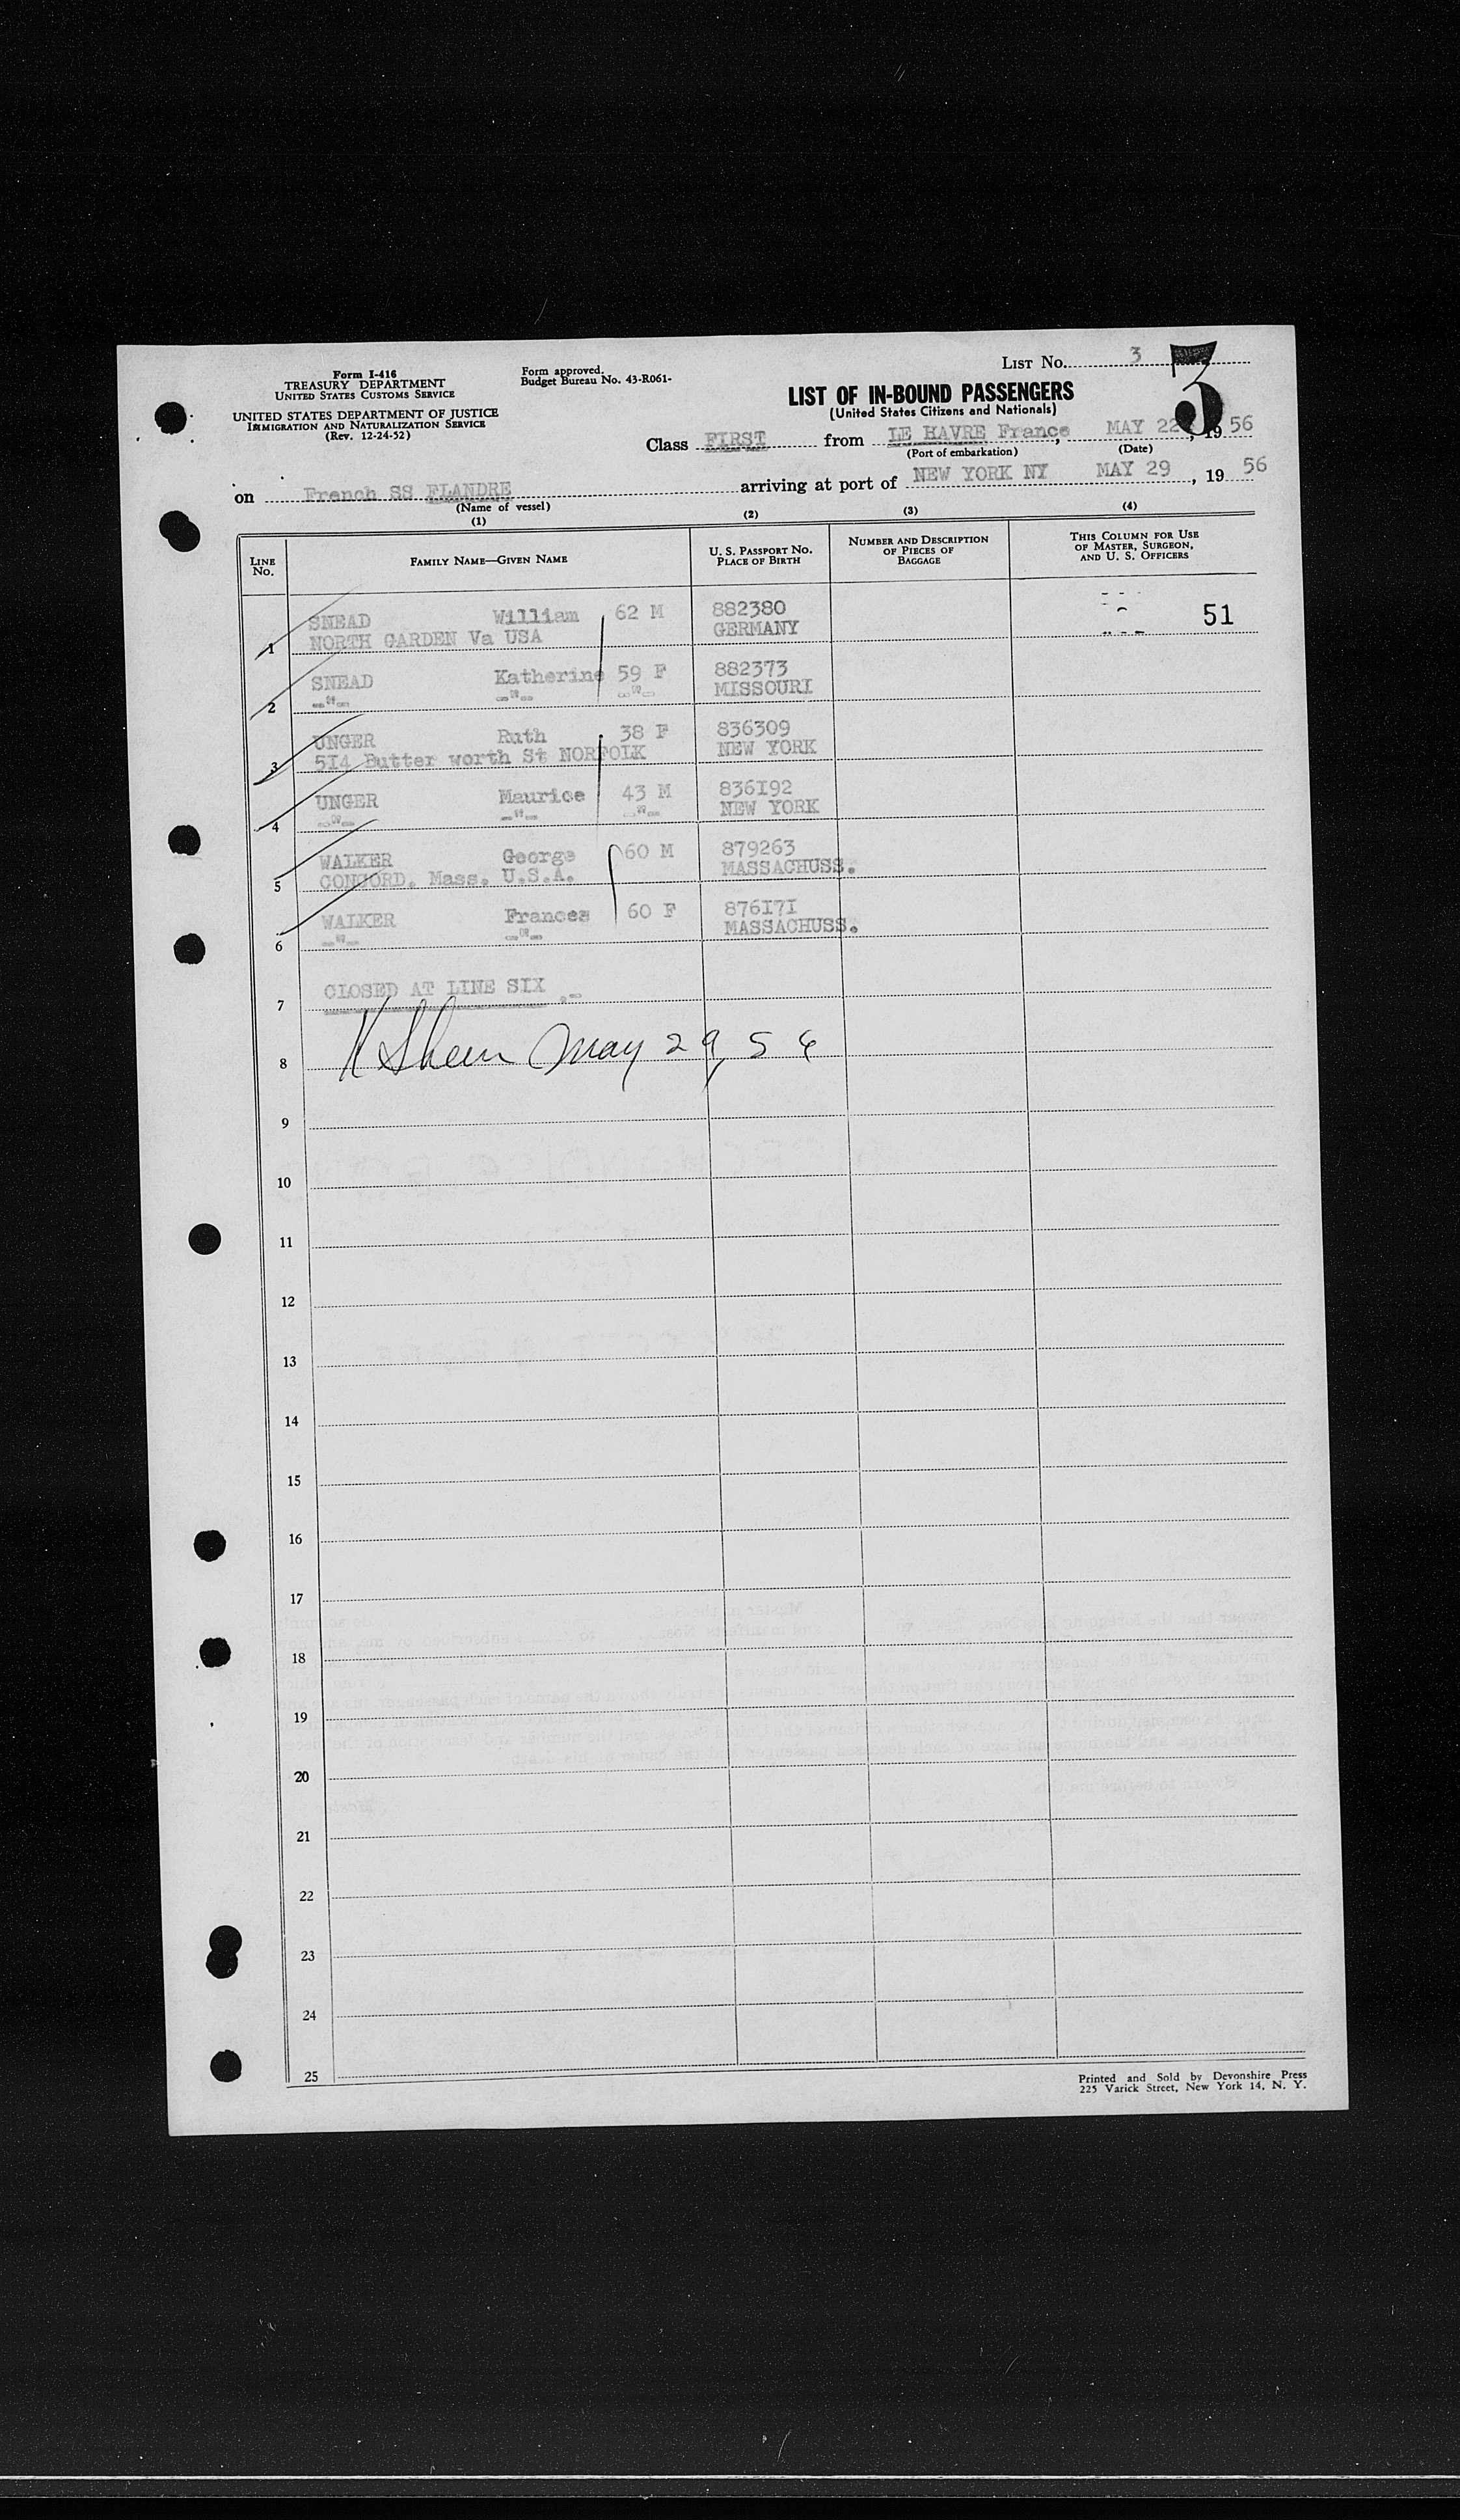 LIST No. 3
3
Form I-416
TREASURY DEPARTMENT
UNITED STATES CUSTOMS SERVICE
Form approved.
Budget Bureau No. 43-R061-
UNITED STATES DEPARTMENT OF JUSTICE
IMMIGRATION AND NATURALIZATION SERVICE
(Rev. 12-24-52)
LIST OF IN-BOUND PASSENGERS
(United States Citizens and Nationals)
Class FIRST from LE HAVRE France, MAY 22, 1956
(Port of embarkation) (Date)
on French SS FLANDRE arriving at port of NEW YORK NY MAY 29, 1956
(Name of vessel)
(1) (2) (3) (4)
LINE No. FAMILY NAME—GIVEN NAME U. S. PASSPORT No. PLACE OF BIRTH NUMBER AND DESCRIPTION OF PIECES OF BAGGAGE THIS COLUMN FOR USE OF MASTER, SURGEON, AND U. S. OFFICERS
SNEAD William 62 M 882380 51
1 NORTH GARDEN Va USA GERMANY
SNEAD Katherine 59 F 882373
2 -"- -"- -"- MISSOURI
UNGER Ruth 38 F 836309
3 514 Butter worth St NORFOLK NEW YORK
UNGER Maurice 43 M 836192
4 -"- -"- -"- NEW YORK
WALKER George 60 M 879263
5 CONCORD. Mass. U.S.A. MASSACHUSS.
WALKER Frances 60 F 876171
6 -"- -"- MASSACHUSS.
7 CLOSED AT LINE SIX .-
8 May 29, 56
9
10
11
12
13
14
15
16
17
18
19
20
21
22
23
24
25
Printed and Sold by Devonshire Press
225 Varick Street, New York 14, N. Y.